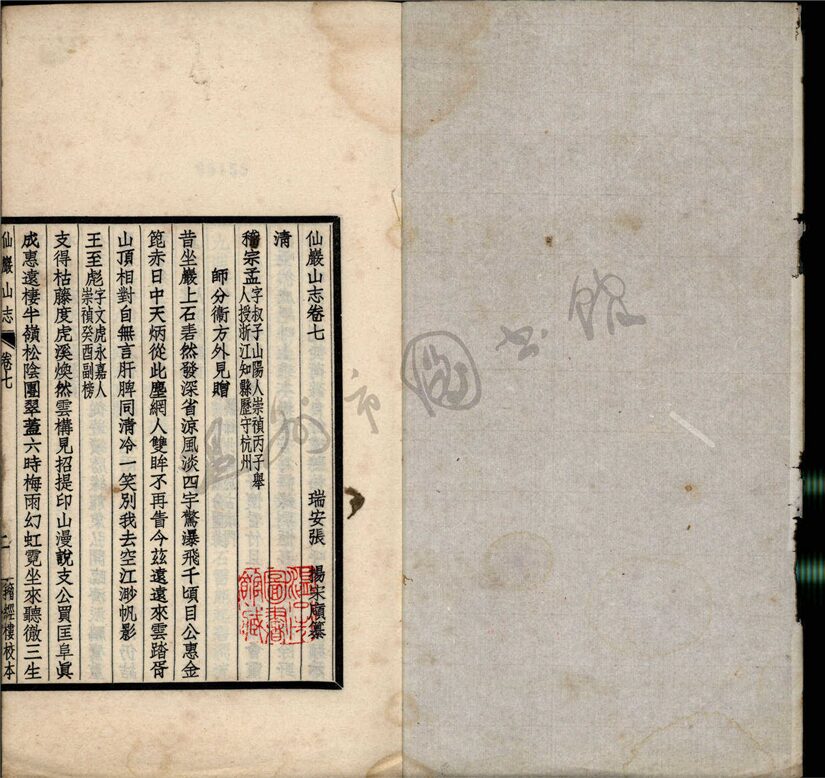 仙巖山志卷七
瑞安張 揚宋廎纂
清
嵇宗孟字叔子山陽人崇禎丙子舉
人授浙江知縣歷守杭州
師分衛方外見贈
昔坐巖上石砉然發深省涼風淡四宇驚瀑飛千頃目公惠金
篦赤日中天炳從此塵網人雙眸不再眚今茲遠遠來雲踏胥
山頂相對自無言肝脾同清冷一笑別我去空江渺帆影
王至彪字文虎永嘉人
崇禎癸酉副榜
支得枯藤度虎溪煥然雲構見招提印山漫說支公買匡阜眞
成惠遠棲半嶺松陰團翠蓋六時梅雨幻虹霓坐來聽徹三生
仙巖山志
卷七
一
籀經樓校本
溫州市圖書館
溫州市圖書館藏